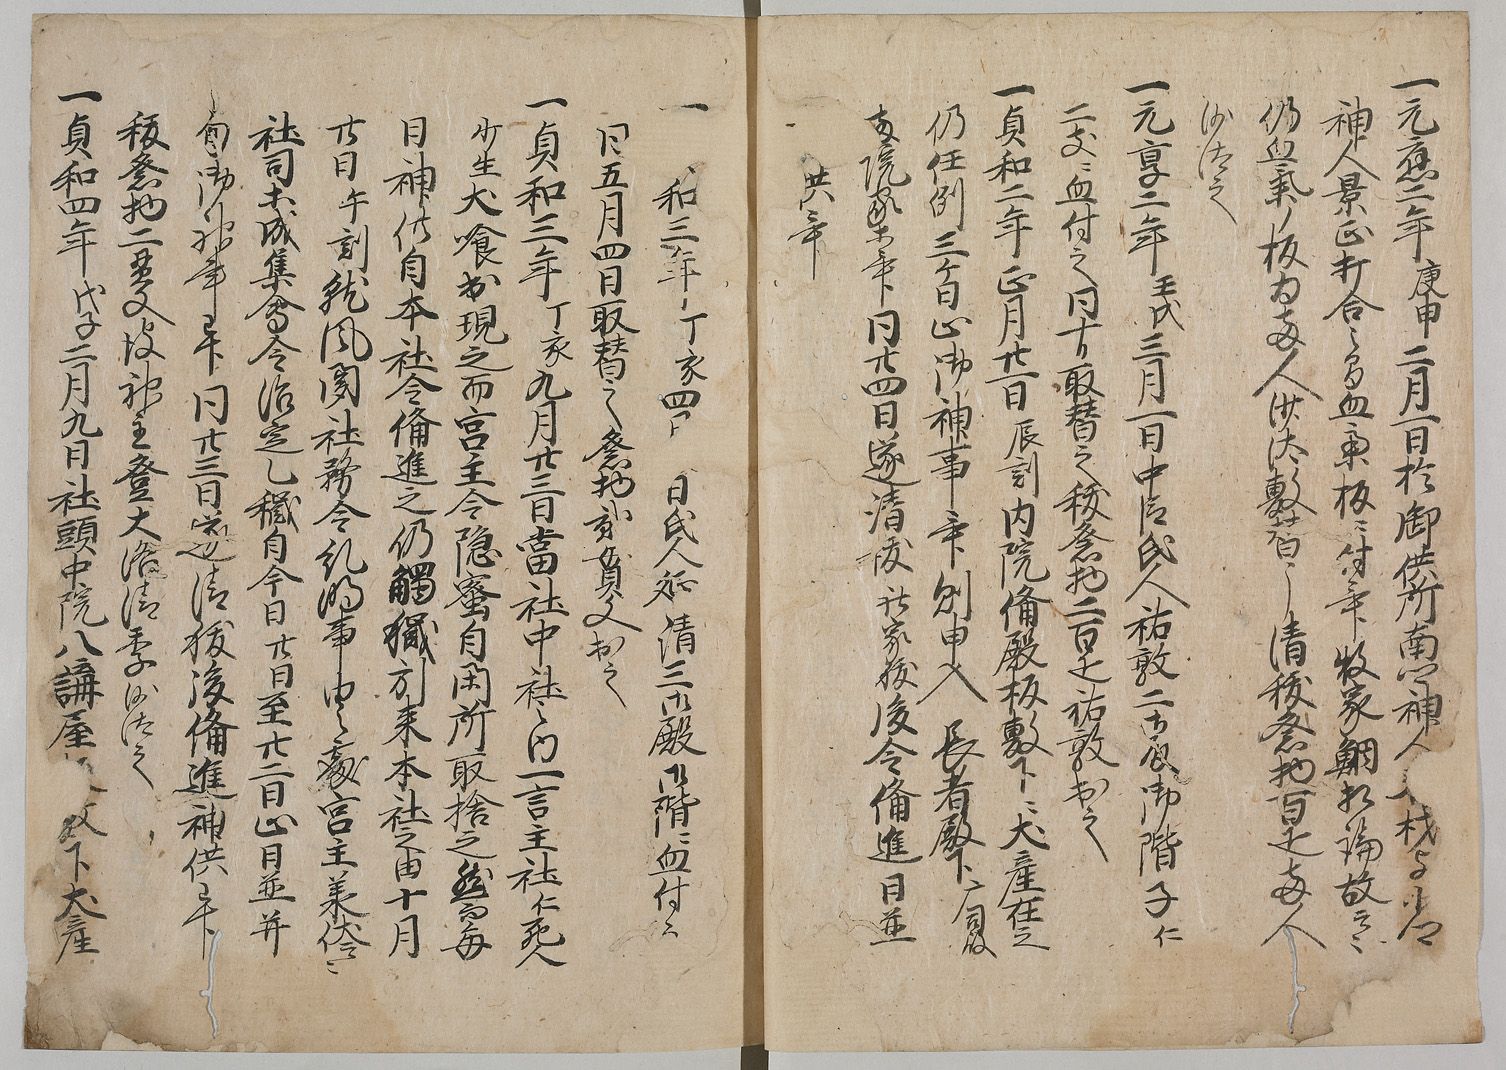 一元應二年庚申二月一日於御供所南門神人
神人景正打合之間血垂板ニ付畢牧家鯛相論故云々
仍血氣ノ板為両人洪汰敷替之清祓祭物百疋両人
沙汰之
一元亨二年壬戌三月一日中臣氏人祐敦二古良御階子仁
二支ニ血付之同十日取替之祓祭物二百疋祐敦出之
一貞和二年正月廿一日辰刻内院備殿板敷下ニ犬産在之
仍任例三ケ日止御神事畢則申入長者殿下
両院家畢同廿四日遂清祓社家祓後令備進日並
供畢
一 和三年丁亥四月 日氏人延清三御殿御階ニ血付之
同五月四日取替之祭物貳貫文出之
一貞和三年丁亥九月廿三日當社中社之内一言主社仁死人
少生犬喰出現之而宮主令隠蜜自閑所取捨之然而毎
日神供自本社令備進之仍觸穢引来本社之由十月
廿日午刻就風聞社務令糺明事由之處宮主承伏
社司等成集會令治定乙穢自今日廿日至廿二日止日並并
旬御神事畢同廿三日遂清祓後備進神供畢
祓祭物二貫文彼神主登大沼清季沙汰之
一貞和四年戊子二月九日社頭中院八講屋 敷下犬産